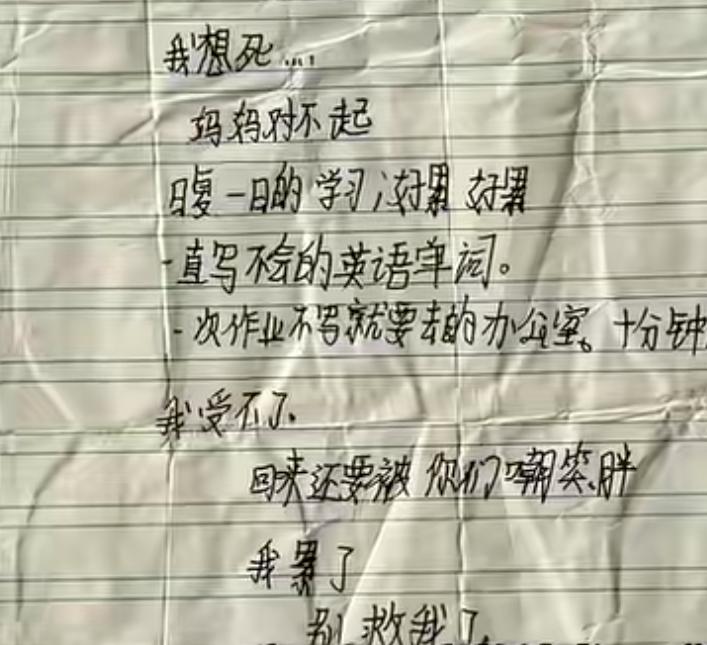 我想死....
妈妈对不起
日复一日的学习,好累 好累
一直写不会的英语单词。
一次作业不写就要去的办公室。十分钟
我受不了、
回来还要被你们嘲笑胖
我累了
别救我了